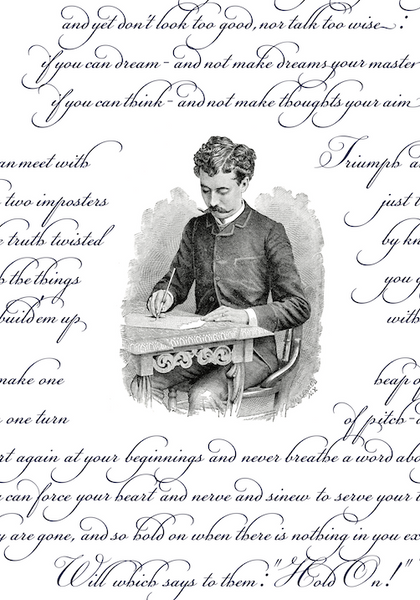 and yet don't look too good, nor talk too wise:
if you can dream - and not make dreams your master
if you can think - and not make thoughts your aim
an meet with Triumph a
two imposters just t
e truth twisted by kn
the things you g
build em up with
make one heap o
one turn of pitch-
rt again at your beginnings and never breathe a word abo
can force your heart and nerve and sinew to serve your t
y are gone, and so hold on when there is nothing in you ex
Will which says to them: "Hold On!"